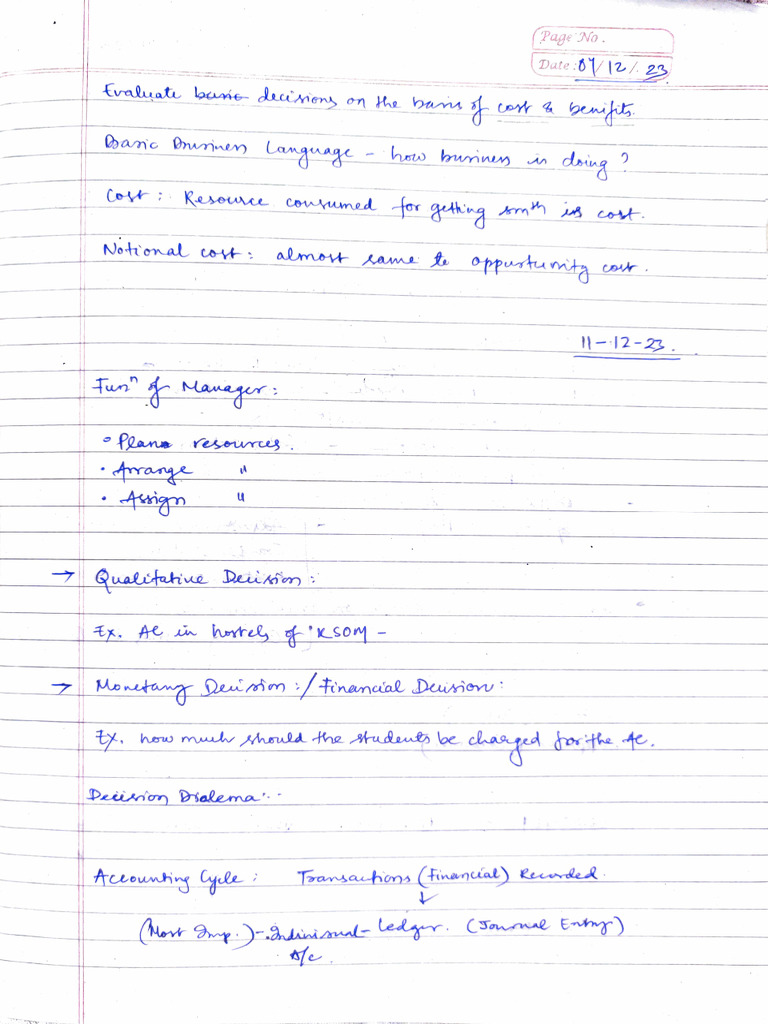 Page No.
Date: 07/12/23
Evaluate basic decisions on the basis of cost & benifits.
Basic Business Language – how business is doing?
Cost: Resource consumed for getting smth is cost.
Notional cost: almost same to oppurtunity cost.
11-12-23.
Funⁿ of Manager:
• Plan resources.
• Arrange "
• Assign "
→ Qualitative Decision:
Ex. AC in hostels of KSOM –
→ Monetary Decision:/Financial Decision:
Ex. how much should the students be charged for the AC.
Decision Dialema:
Accounting Cycle: Transactions (Financial) Recorded.
↓
(Most Imp.) - Indivisual - Ledger. (Journal Entry)
A/c